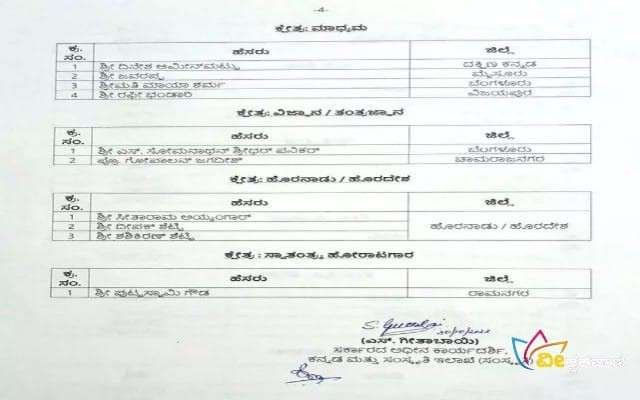 -4-
ಕ್ಷೇತ್ರ: ಮಾಧ್ಯಮ
ಕ್ರ. ಸಂ. ಹೆಸರು ಜಿಲ್ಲೆ
1 ಶ್ರೀ ದಿನೇಶ ಅಮೀನ್‌ಮಟ್ಟು ದಕ್ಷಿಣ ಕನ್ನಡ
2 ಶ್ರೀ ಜವರಪ್ಪ ಮೈಸೂರು
3 ಶ್ರೀಮತಿ ಮಾಯಾ ಶರ್ಮ ಬೆಂಗಳೂರು
4 ಶ್ರೀ ರಫೀ ಭಂಡಾರಿ ವಿಜಯಪುರ
ಕ್ಷೇತ್ರ: ವಿಜ್ಞಾನ / ತಂತ್ರಜ್ಞಾನ
ಕ್ರ. ಸಂ. ಹೆಸರು ಜಿಲ್ಲೆ
1 ಶ್ರೀ ಎಸ್. ಸೋಮನಾಥನ್ ಶ್ರೀಧರ್ ಪನಿಕರ್ ಬೆಂಗಳೂರು
2 ಪ್ರೊ. ಗೋಪಾಲನ್ ಜಗದೀಶ್ ಚಾಮರಾಜನಗರ
ಕ್ಷೇತ್ರ: ಹೊರನಾಡು / ಹೊರದೇಶ
ಕ್ರ. ಸಂ. ಹೆಸರು ಜಿಲ್ಲೆ
1 ಶ್ರೀ ಸೀತಾರಾಮ ಅಯ್ಯಂಗಾರ್
2 ಶ್ರೀ ದೀಪಕ್ ಶೆಟ್ಟಿ ಹೊರನಾಡು / ಹೊರದೇಶ
3 ಶ್ರೀ ಶಶಿಕಿರಣ್ ಶೆಟ್ಟಿ
ಕ್ಷೇತ್ರ : ಸ್ವಾತಂತ್ರ್ಯ ಹೋರಾಟಗಾರ
ಕ್ರ. ಸಂ. ಹೆಸರು ಜಿಲ್ಲೆ
1 ಶ್ರೀ ಪುಟ್ಟಸ್ವಾಮಿ ಗೌಡ ರಾಮನಗರ
(ಎಸ್. ಗೀತಾಬಾಯಿ)
ಸರ್ಕಾರದ ಅಧೀನ ಕಾರ್ಯದರ್ಶಿ,
ಕನ್ನಡ ಮತ್ತು ಸಂಸ್ಕೃತಿ ಇಲಾಖೆ (ಸಂಸ್ಕೃತಿ)